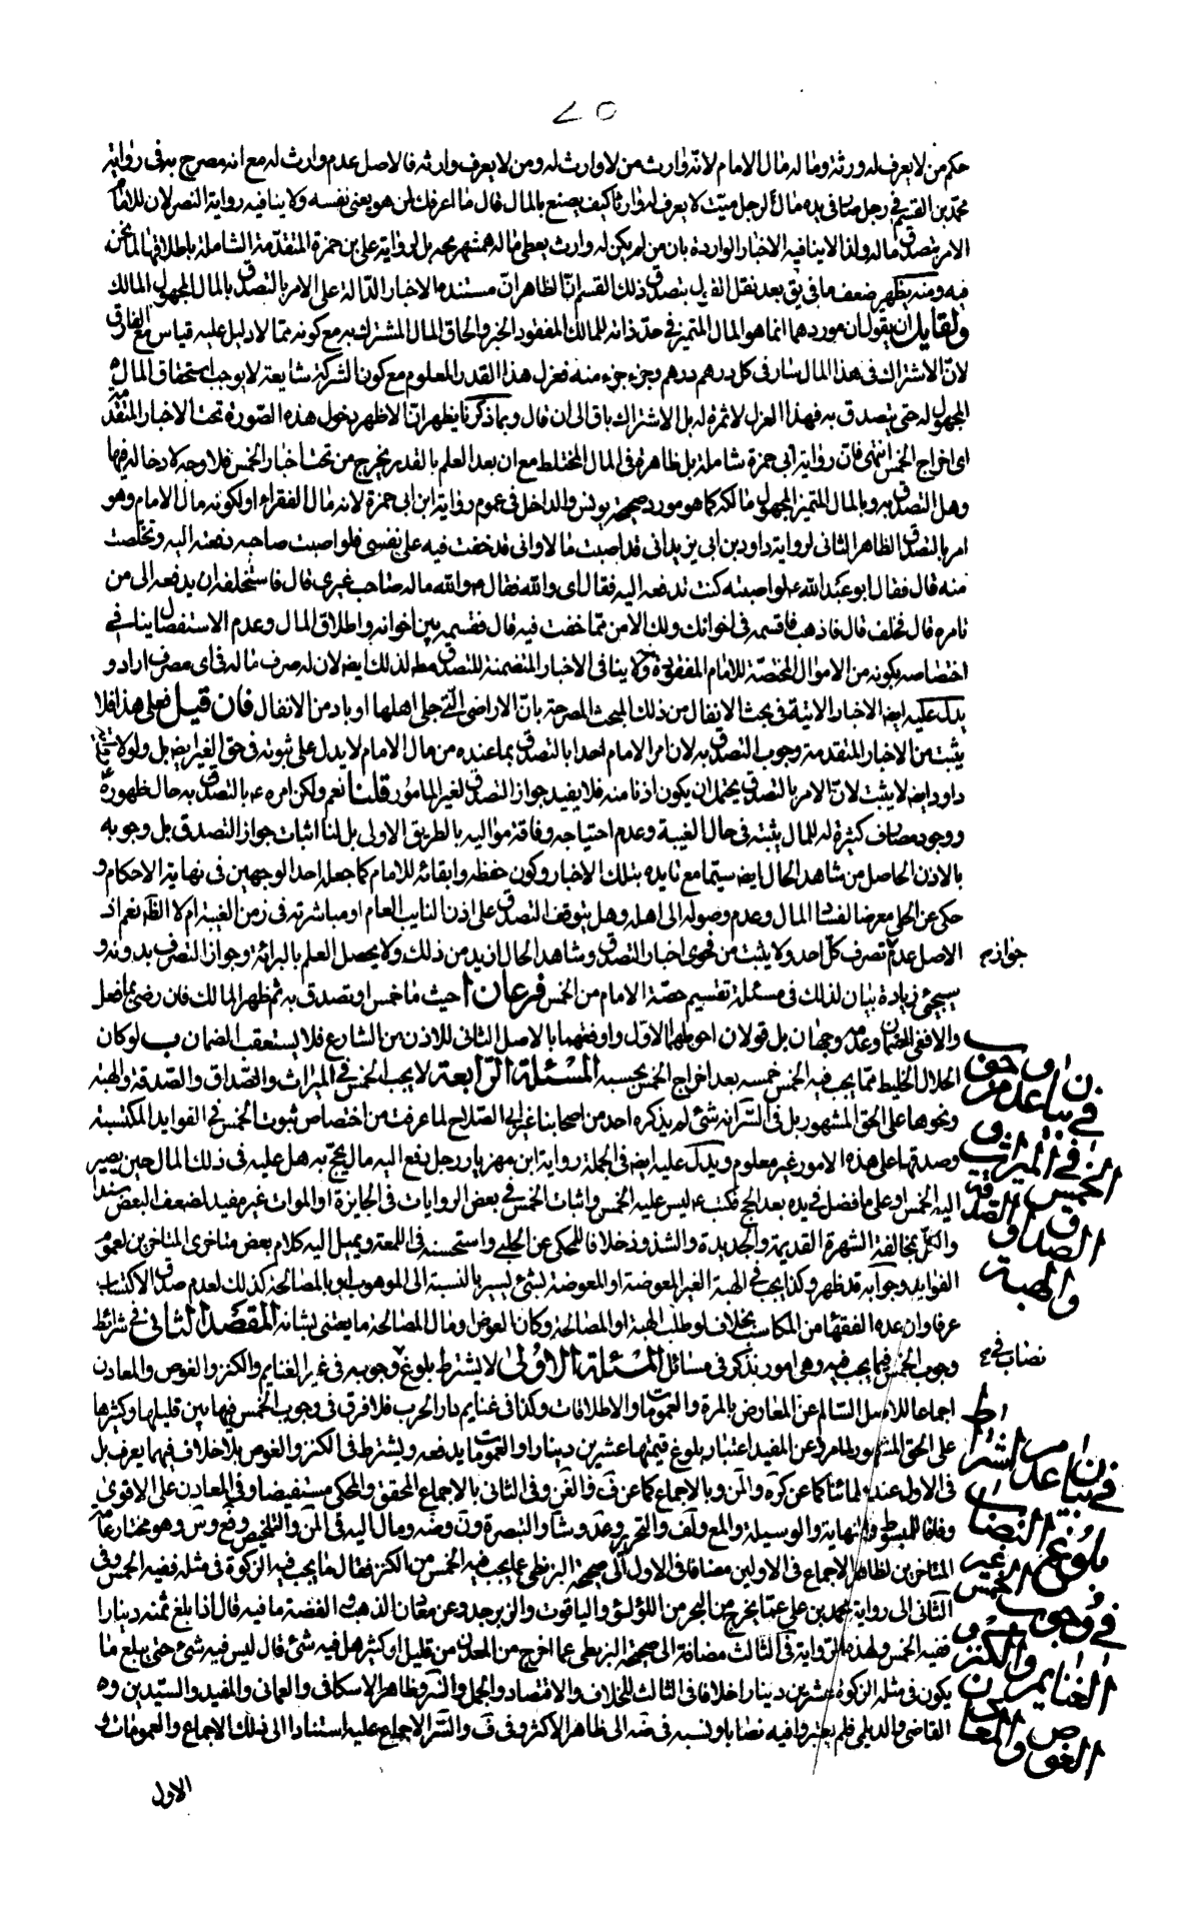 حكم من لا يعرف له ورثة وماله مال الامام لانه وارث من لا وارث له ومن لا يعرف وارثه فالاصل عدم وارث له مع انه مصرح به فى رواية
محمد بن القسيم فى رجل صار فى يده مال لرجل ميت لا يعرف له وارثا كيف يصنع بالمال قال ما اعرفك لمن هو يعنى نفسه ولا ينافيه رواية النصر لان للامام
الامر بتصدق ماله ولذا لا ينافيه الاخبار الواردة بان من لم يكن له وارث يعطى ماله همشهريجه بل لرواية على بن حمزة المتقدمة الشاملة باطلاقها لما نحن
فيه ومنه يظهر ضعف ما فى يق بعد نقل القول بتصدق ذلك القسم ان الظاهر ان مستنده الاخبار الدالة على الامر بالتصدق بالمال المجهول المالك
ولقايل ان يقول ان موردها انما هو المال المتميز فى حد ذاته للمالك المفقود الخبر والحاق المال المشترك به مع كونه مما لا دليل عليه قياس مع الفارق
لان الاشتراك فى هذا المال سار فى كل درهم درهم وجزء جزء منه فعزل هذا القدر المعلوم مع كون الشركة شايعة لا يوجب استحقاق المالك
المجهول له حتى يتصدق به فهذا العزل لا ثمرة له بل الاشتراك باق الى ان قال وبما ذكرنا يظهر ان الاظهر دخول هذه الصورة تحت الاخبار المتقدمة
اى اخراج الخمس انتهى فان رواية ابى حمزة شاملة بل ظاهرة فى المال المختلط مع ان بعد العلم بالقدر يخرج من تحت اخبار الخمس فلا وجه لادخاله فيها
وهل التصدق به وبالمال المتميز المجهول مالكه كما هو مورد صحيحة يونس والداخل فى عموم رواية ابن ابى حمزة لانه مال الفقراء او لكونه مال الامام وهو
امر بالتصدق الظاهر الثانى لرواية داود بن ابى يزيد انى قد اصبت مالا وانى قد خفت فيه على نفسى فلو اصبت صاحبه دفعته اليه وتخلصت
منه قال فقال ابو عبد الله ع لو اصبته كنت تدفعه اليه فقال اى والله فقال والله ماله صاحب غيرى قال فاستحلفه ان يدفعه الى من
يامره قال فحلف قال فاذهب فاقسمه فى اخوانك ولك الامن مما خفت فيه قال فقسمه بين اخوانه واطلاق المال وعدم الاستفصال ينافى
اختصاصه بكونه من الاموال المختصة للامام المفقودة ولا ينافى الاخبار المتضمنة للتصدق مط لذلك ايضا لان له صرف ماله فى اى مصرف اراد و
يدل عليه ايضا الاخبار الاتية فى بحث الانفال من ذلك المبحث المصرحة بان الاراضى التى جلى اهلها او باد من الانفال فان قيل فعلى هذا فلا
يثبت من الاخبار المتقدمة وجوب التصدق به لان امر الامام احدا بالتصدق بما عنده من مال الامام لا يدل على ثبوته فى حق الغير ايضا بل ولو لا
داود ايضا لا يثبت لان الامر بالتصدق يحتمل ان يكون اذنا منه فلا يفيد جواز التصدق لغير المامور قلنا نعم ولكن امره ع بالتصدق به حال ظهوره
ووجود مصارف كثيرة له للمال يثبته فى حال الغيبة وعدم احتياجه وفاقة مواليه بالطريق الاولى بل لنا اثبات جواز التصدق بل وجوبه
بالاذن الحاصل من شاهد الحال ايضا سيما مع تايده بتلك الاخبار وكون حفظه وابقائه للامام كما جعله احد الوجهين فى نهاية الاحكام و
حكى عن الحلى معرضا لفساد المال وعدم وصوله الى اهله وهل يتوقف التصدق على اذن النايب العام او مباشرته فى زمن الغيبة ام لا الظاهر نعم اذ
الاصل عدم تصرف كل احد ولا يثبت من فحوى اخبار التصدق وشاهد الحال ازيد من ذلك ولا يحصل العلم بالبرائة وجواز التصرف بدونه و
جوازم
سيجئ زيادة بيان لذلك فى مسئلة تقسيم حصة الامام من الخمس فرعان ا حيث ما خمس او تصدق به ثم ظهر المالك فان رضى بما فعل
والا ففى الضمان وعدمه وجهان بل قولان احوطهما الاول واوفقهما بالاصل الثانى للاذن من الشارع فلا يستعقب الضمان ب لو كان
الحلال الخليط مما يجب فيه الخمس خمسه بعد اخراج الخمس بحسبه المسئلة الرابعة لا يجب الخمس فى الميراث والصداق والصدقة والهبة
ونحوها على الحق المشهور بل فى السرائر انه شئ لم يذكره احد من اصحابنا غير ابى الصلاح لما عرفت من اختصاص ثبوت الخمس فى الفوايد المكتسبة
وصدقها على هذه الامور غير معلوم ويدل عليه ايضا فى الجملة رواية ابن مهزيار رجل دفع اليه مال يحج به هل عليه فى ذلك المال حين يصير
اليه الخمس او على ما فضل فى يده بعد الحج فكتب ع ليس عليه الخمس واثبات الخمس فى بعض الروايات فى الجايزة او المواث غير مفيد لضعف البعض سندا
والكل بمخالفة الشهرة القديمة والجديدة والشذوذ خلافا للمحكى عن الحلبى واستحسنه فى اللمعة ويميل اليه كلام بعض متاخرى المتاخرين لعموم
الفوايد وجوابه قد ظهر وكذا يجب فى الهبة الغير المعوضة او المعوضة لشئ يسير بالنسبة الى الموهوب او بالمصالحة كذلك لعدم صدق الاكتساب
عرفا وان عده الفقهاء من المكاسب بخلاف لو طلب الهبة او المصالحة وكان العوض او مال المصالحة ما يعتنى بشانه المقصد الثانى فى شرائط
وجوب الخمس فيما يجب فيه وهى امور نذكر فى مسائل المسئلة الاولى لا يشترط بلوغ وجوبه فى غير الغنايم والكنز والغوص والمعادن
نصاب فى م
اجماعا للاصل السالم عن المعارض بالمرة والعمومات والاطلاقات وكذا فى غنايم دار الحرب فلا فرق فى وجوب الخمس فيها بين قليلها وكثيرها
على الحق المشهور لما مر وعن المفيد اعتبار بلوغ قيمتها عشرين دينارا والعمومات يدفعه ويشترط فى الكنز والغوص بلا خلاف فيهما يعرف بل
فى الاول عندعلمائنا كما عن كره والمن وبالاجماع كما عن ف والغن وفى الثانى بالاجماع المحقق والمحكى مستفيضا وفى المعادن على الاقوى
وفاقا للمبسوط والنهاية والوسيلة والمع ولف والتحرير وعد وشا والتبصرة ون وضه ومال اليه فى المن والتلخيص وقع وس وهو مختار عامة
المتاخرين لظاهر الاجماع فى الاولين مضافا فى الاول الى صحيحة البزنطى عما يجب فيه الخمس من الكنز فقال ما يجب فيه الزكوة فى مثله ففيه الخمس وفى
الثانى الى رواية محمد بن على عما يخرج من البحر من اللؤلؤ والياقوت والزبرجد وعن معادن الذهب والفضة ما فيه قال اذا بلغ ثمنه دينارا
ففيه الخمس ولهذه الرواية فى الثالث مضافة الى صحيحة البزنطى عما اخرج من المعدن من قليل او كثير هل فيه شئ قال ليس فيه شئ حتى يبلغ ما
يكون فى مثله الزكوة عشرين دينارا خلافا فى الثالث للخلاف والاقتصاد والجمل والسر وظاهر الاسكافى والعمانى والمفيد والسيدين وه
القاضى والديلمى فلم يعتبروا فيه نصابا ونسبه فى ضه الى ظاهر الاكثر وفى ف والسر الاجماع عليه استنادا الى ذلك الاجماع والعمومات و
الاول
فى بيان عدم وجوب
الخمس فى الميراث و
الصداق والصدقة
والهبة
فى بيان عدم اشتراط
بلوغ النصاب
فى وجوب الخمس غير
الغنايم والكنز و
الغوص والمعادن